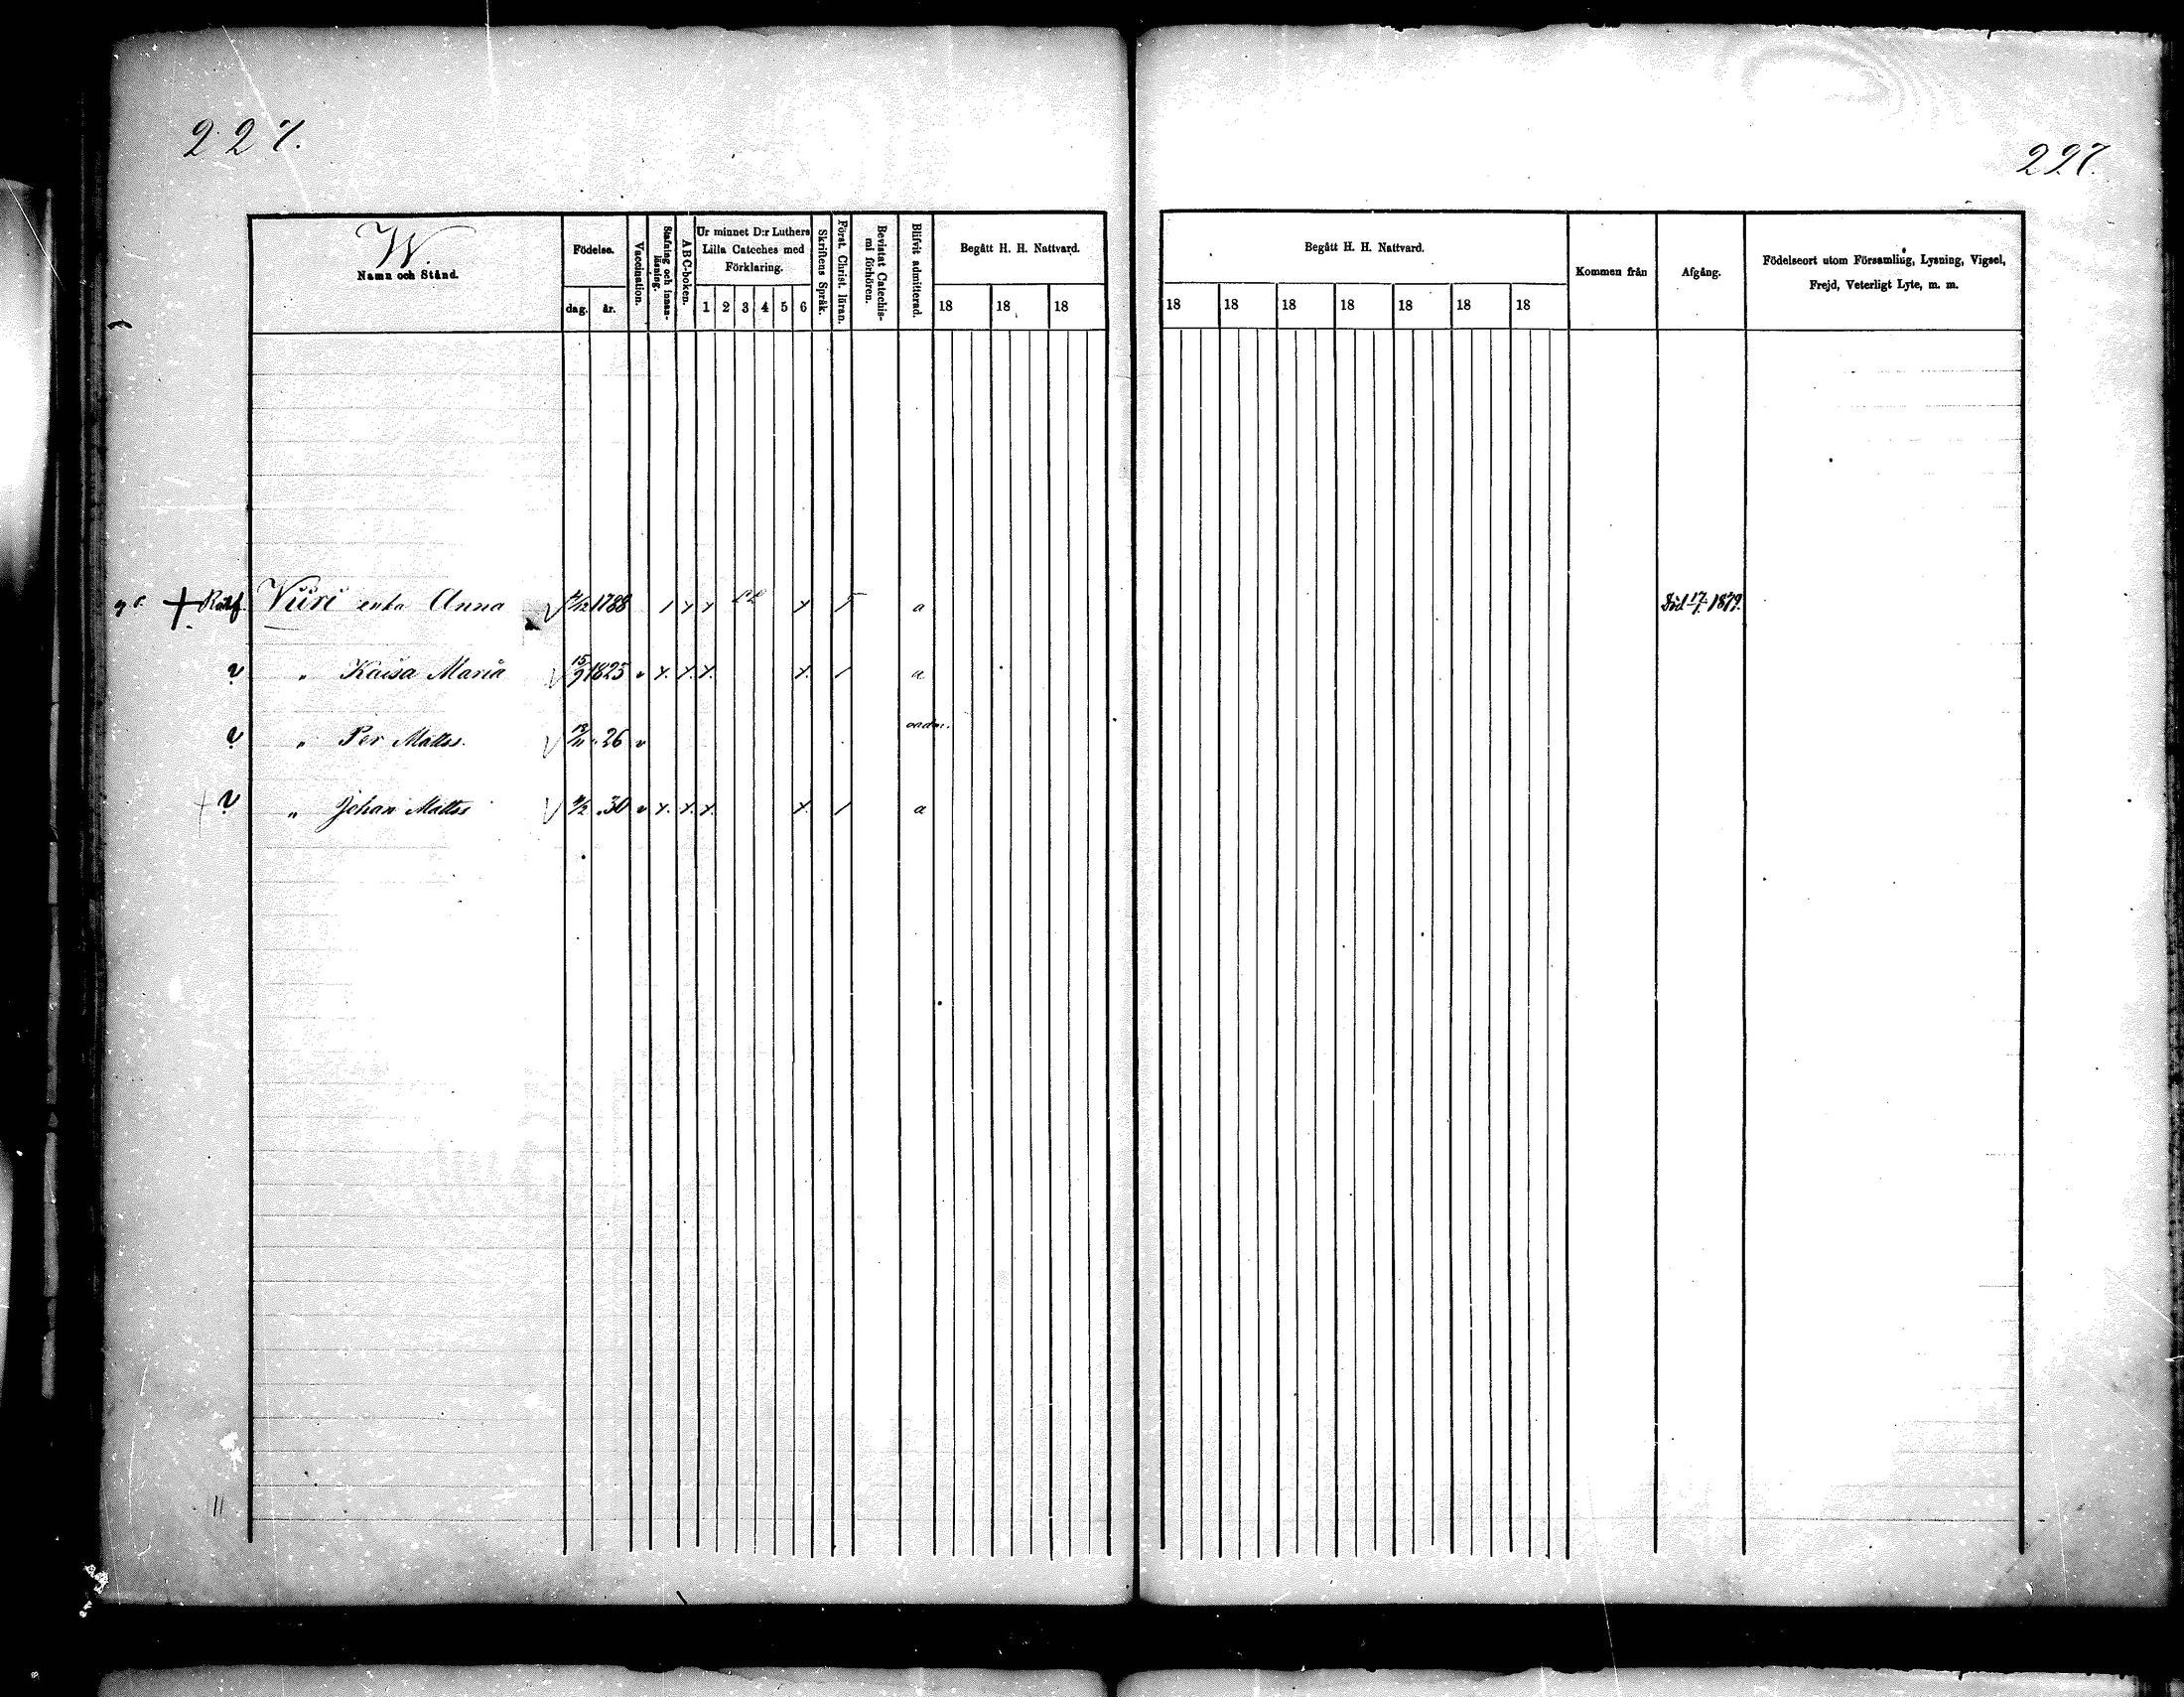 227.
227.
W.
Namn och Stånd.
Födelse.
dag. år.
Vaccination.
Stafning och innanläsning.
ABC-boken.
Ur minnet D:r Luthers
Lilla Cateches med
Förklaring.
1 2 3 4 5 6
Skriftens Språk.
Först. Christ. läran.
Bevistat Catechismi förhören.
Blifvit admitterad.
Begått H. H. Nattvard.
18 18 18
Begått H. H. Nattvard.
18 18 18 18 18 18 18
Kommen från
Afgång.
Födelseort utom Församling, Lysning, Vigsel,
Frejd, Veterligt Lyte, m. m.
Viiri enka Anna 1788 a Död 17/7 1879.
" Kaisa Maria 15/9 1825 v a
" Per Matts. 26 v oadm.
" Johan Matts 30 v a